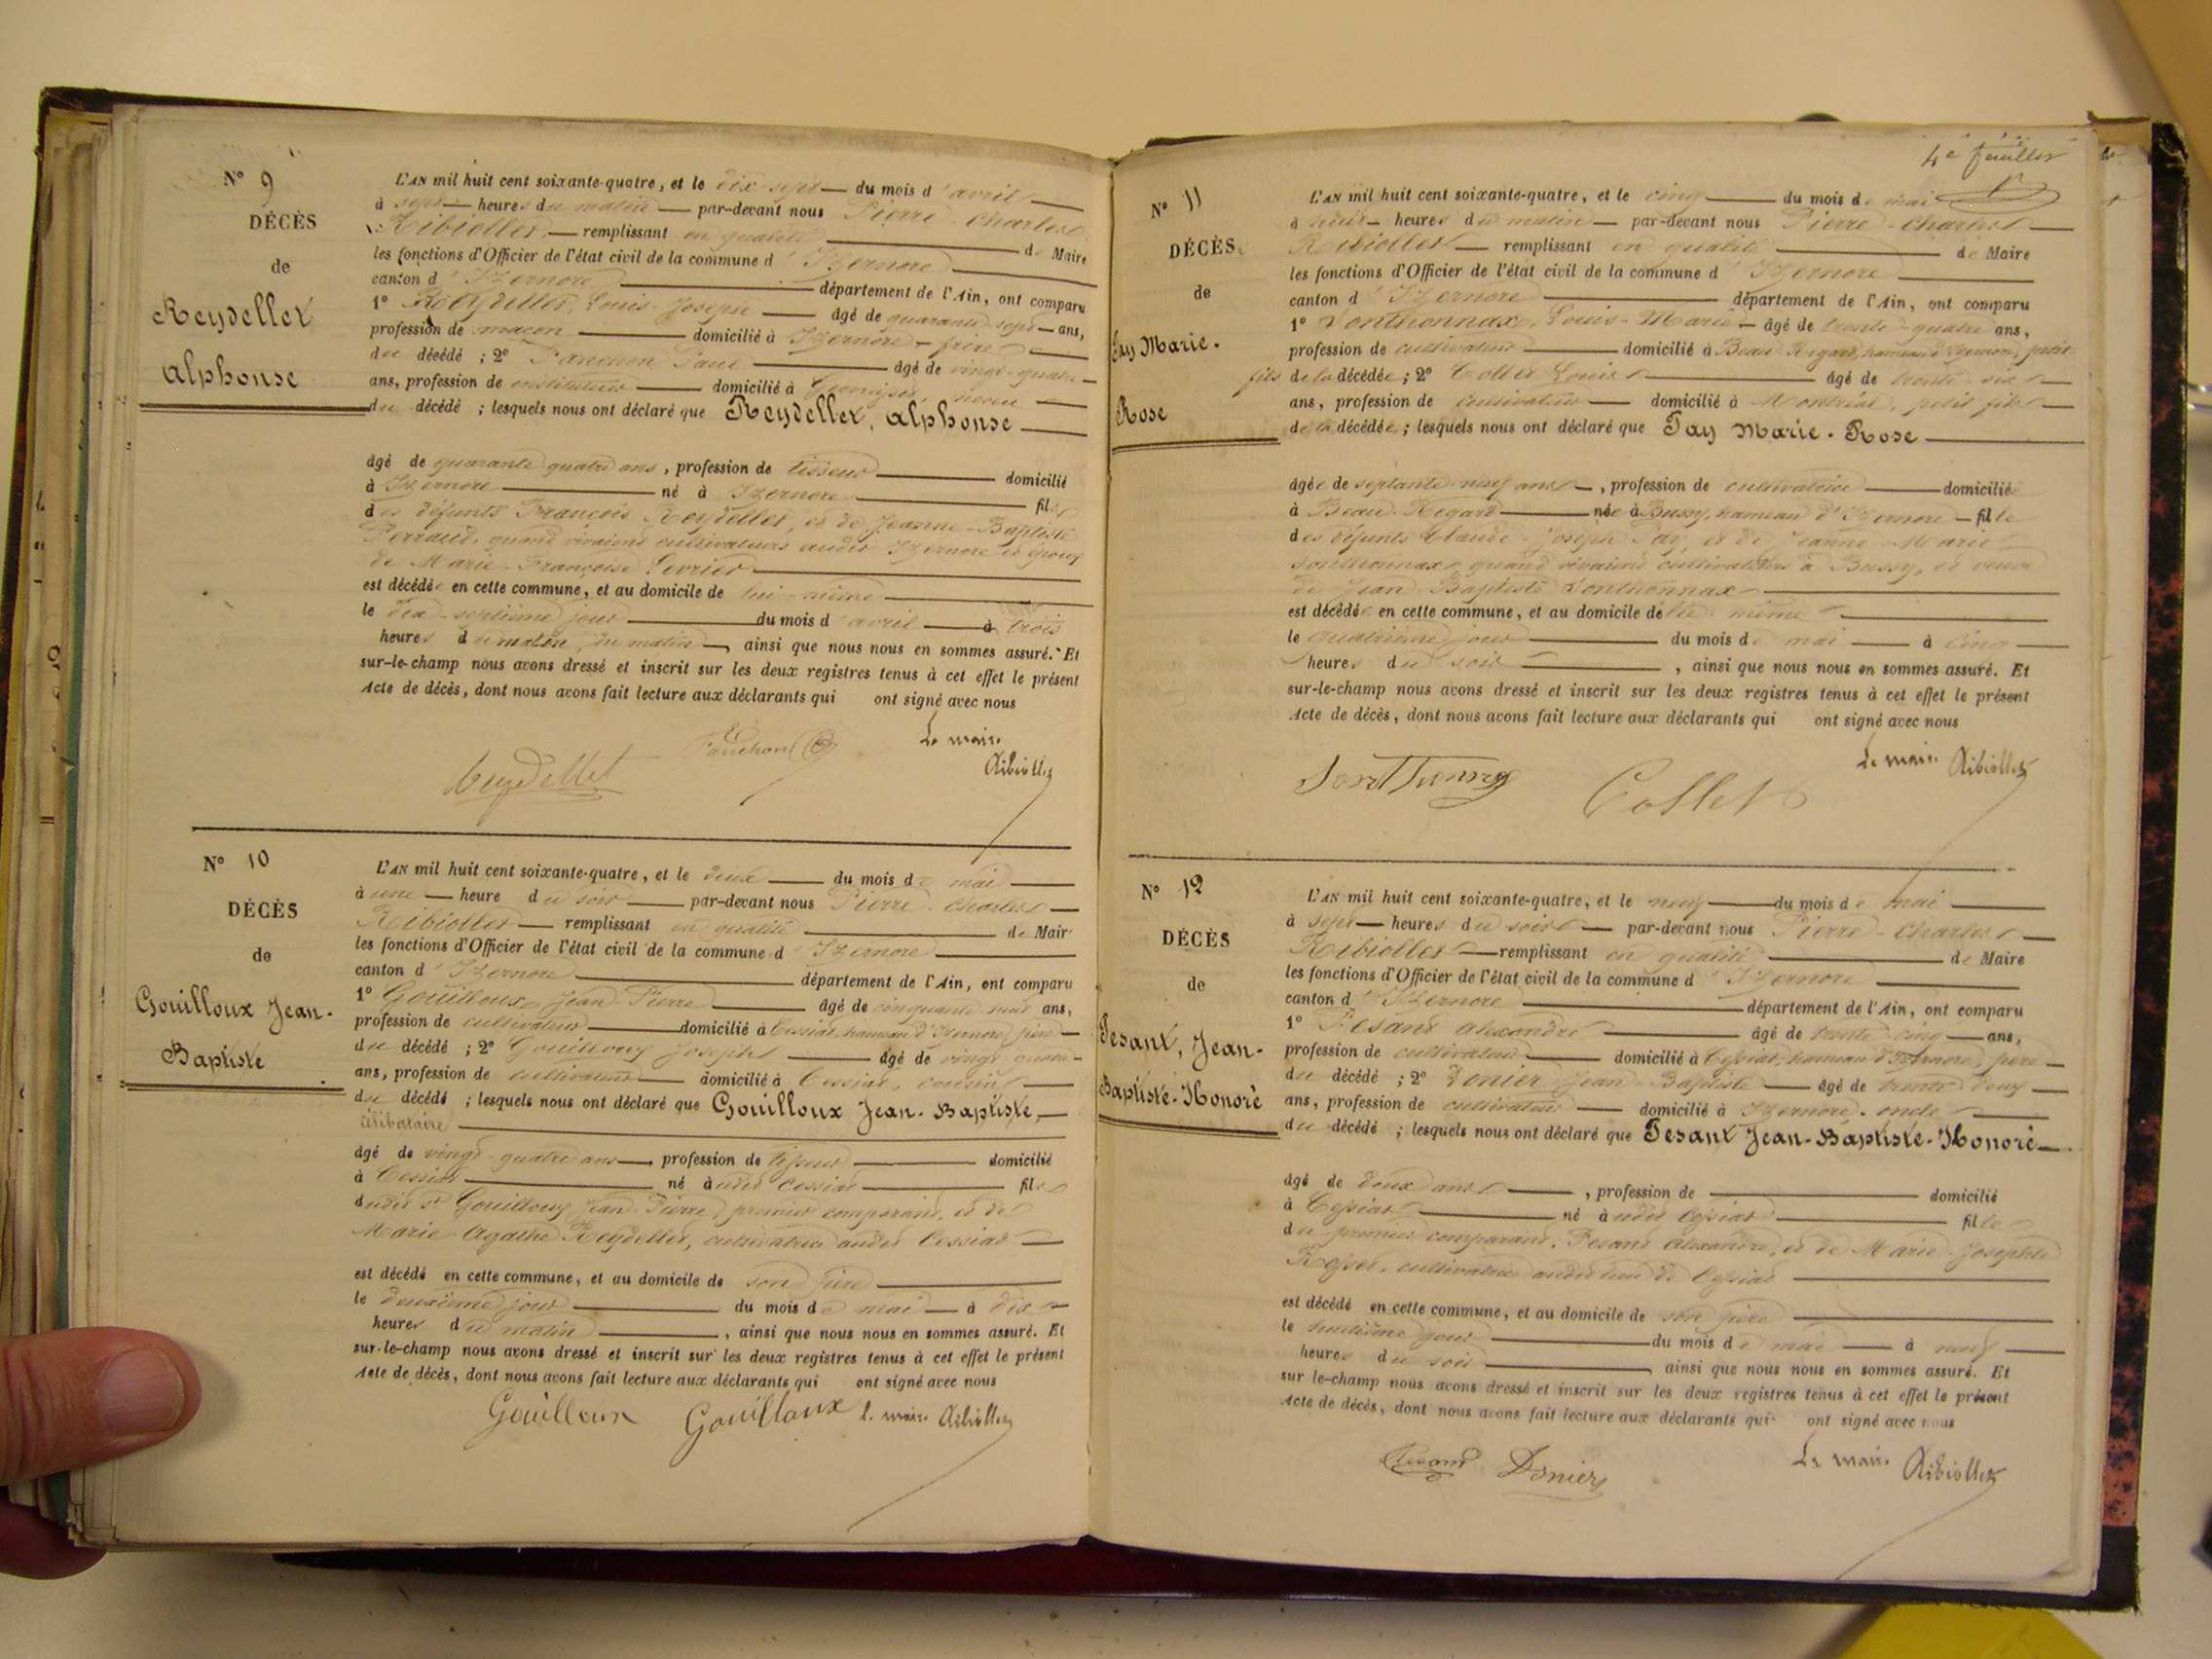 N° 9
DÉCÈS
de
Reydellet
Alphonse
L'AN mil huit cent soixante-quatre, et le dix-sept du mois d'avril
à sept heures du matin par-devant nous Pierre-Charles
Ribiollet remplissant en qualité de Maire
les fonctions d'Officier de l'état civil de la commune d'Izernore
canton d'Izernore département de l'Ain, ont comparu
1° Reydellet, Louis-Joseph âgé de quarante-sept ans,
profession de maçon domicilié à Izernore, frère
du décédé ; 2° Fanchon Paul âgé de vingt-quatre
ans, profession de instituteur domicilié à neveu
du décédé ; lesquels nous ont déclaré que Reydellet, Alphonse
âgé de quarante quatre ans, profession de tisseur domicilié
à Izernore né à Izernore fils
des défunts François Reydellet, et de Jeanne-Baptiste
Perraud, quand vivaient cultivateurs audit Izernore et époux
de Marie-Françoise
est décédé en cette commune, et au domicile de lui-même
le dix-septième jour du mois d'avril à trois
heures du matin, du matin, ainsi que nous nous en sommes assuré. Et
sur-le-champ nous avons dressé et inscrit sur les deux registres tenus à cet effet le présent
Acte de décès, dont nous avons fait lecture aux déclarants qui ont signé avec nous
Reydellet Fanchon Le maire
Ribiollet
N° 10
DÉCÈS
de
Gouilloux Jean-
Baptiste
L'AN mil huit cent soixante-quatre, et le deux du mois de mai
à une heure du soir par-devant nous Pierre-Charles
Ribiollet remplissant en qualité de Maire
les fonctions d'Officier de l'état civil de la commune d'Izernore
canton d'Izernore département de l'Ain, ont comparu
1° Gouilloux, Jean-Pierre âgé de cinquante-huit ans,
profession de cultivateur domicilié à Cessiat, hameau d'Izernore, père
du décédé ; 2° Gouilloux Joseph âgé de vingt quatre
ans, profession de cultivateur domicilié à Cessiat, cousin
du décédé ; lesquels nous ont déclaré que Gouilloux Jean-Baptiste,
célibataire
âgé de vingt-quatre ans, profession de tisseur domicilié
à Cessiat né audit Cessiat fils
dudit sr Gouilloux Jean-Pierre, premier comparant, et de
Marie-Agathe Reydellet, cultivatrice audit Cessiat
est décédé en cette commune, et au domicile de son père
le deuxième jour du mois de mai à dix
heures du matin, ainsi que nous nous en sommes assuré. Et
sur-le-champ nous avons dressé et inscrit sur les deux registres tenus à cet effet le présent
Acte de décès, dont nous avons fait lecture aux déclarants qui ont signé avec nous
Gouilloux Gouilloux le maire Ribiollet
4e feuillet
N° 11
DÉCÈS
de
Fay Marie-
Rose
L'AN mil huit cent soixante-quatre, et le cinq du mois de mai
à huit heures du matin par-devant nous Pierre-Charles
Ribiollet remplissant en qualité de Maire
les fonctions d'Officier de l'état civil de la commune d'Izernore
canton d'Izernore département de l'Ain, ont comparu
1° Sonthonnax, Louis-Marie âgé de trente-quatre ans,
profession de cultivateur domicilié à Beau-Regard, hameau d'Izernore, petit
fils de la décédée ; 2° Collet Louis âgé de trente-six
ans, profession de cultivateur domicilié à Montréal, petit fils
de la décédée ; lesquels nous ont déclaré que Fay Marie-Rose
âgée de septante-neuf ans, profession de cultivatrice domiciliée
à Beau-Regard née à Bussy, hameau d'Izernore fille
des défunts Claude-Joseph Fay, et de Jeanne-Marie
Sonthonnax, quand vivaient cultivateurs à Bussy, et veuve
de Jean-Baptiste Sonthonnax
est décédée en cette commune, et au domicile de elle-même
le quatrième jour du mois de mai à cinq
heures du soir, ainsi que nous nous en sommes assuré. Et
sur-le-champ nous avons dressé et inscrit sur les deux registres tenus à cet effet le présent
Acte de décès, dont nous avons fait lecture aux déclarants qui ont signé avec nous
Collet Le maire Ribiollet
N° 12
DÉCÈS
de
Fesant, Jean-
Baptiste-Honoré
L'AN mil huit cent soixante-quatre, et le neuf du mois de mai
à sept heures du soir par-devant nous Pierre-Charles
Ribiollet remplissant en qualité de Maire
les fonctions d'Officier de l'état civil de la commune d'Izernore
canton d'Izernore département de l'Ain, ont comparu
1° Fesant Alexandre âgé de trente-cinq ans,
profession de cultivateur domicilié à Cessiat, hameau d'Izernore, père
du décédé ; 2° Donier Jean-Baptiste âgé de trente-deux
ans, profession de cultivateur domicilié à Izernore, oncle
du décédé ; lesquels nous ont déclaré que Fesant Jean-Baptiste-Honoré
âgé de deux ans, profession de domicilié
à Cessiat né audit Cessiat fils
du premier comparant, Fesant Alexandre, et de Marie-Josephte
cultivatrice audit lieu de Cessiat
est décédé en cette commune, et au domicile de son père
le huitième jour du mois de mai à neuf
heures du soir, ainsi que nous nous en sommes assuré. Et
sur-le-champ nous avons dressé et inscrit sur les deux registres tenus à cet effet le présent
Acte de décès, dont nous avons fait lecture aux déclarants qui ont signé avec nous
Fesant Donier Le maire Ribiollet